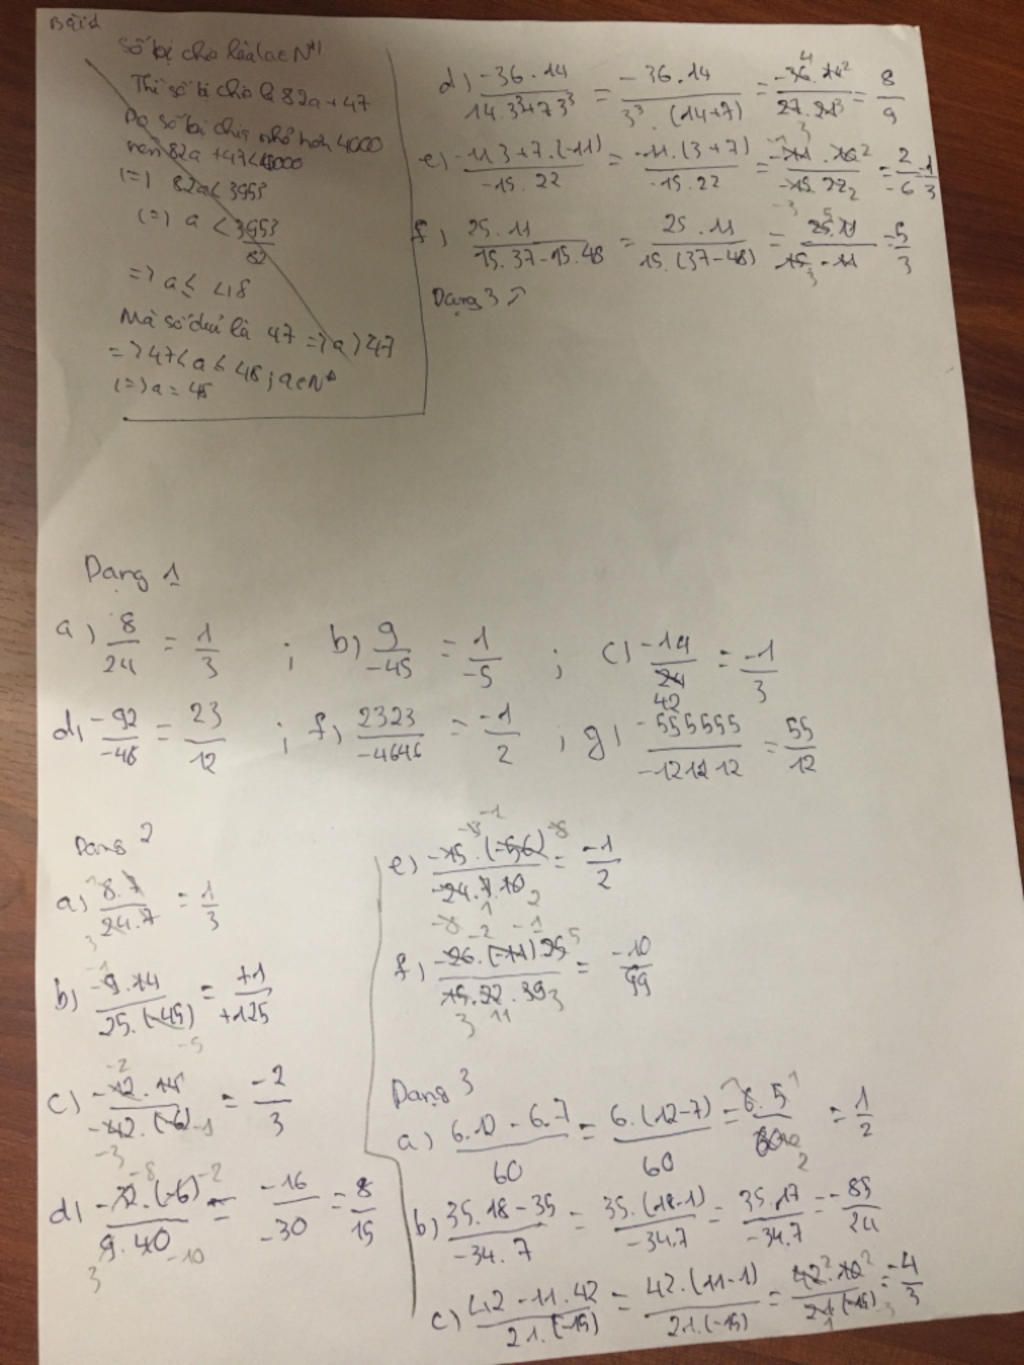 Bài 1
Số bị chia là (a∈N*)
Thì số bị chia là 82a+47
Do số bị chia nhỏ hơn 4000
nên 82a+47<4000
(=) 82a<3953
(=) a < 3953/82
=> a ≤ <48
Mà số dư là 47 => a > 47
=> 47 < a < 48 ; a∈N*
(=) a = 48
d) -36.14/14.3³+7.3³ = -36.14/3³.(14+7) = -36.14/27.21 = 8/9
e) -11.3+7.(-11)/-15.22 = -11.(3+7)/-15.22 = -11.10/-15.22 = 2/-6 -1/3
f) 25.11/15.37-15.48 = 25.11/15.(37-48) = 25.11/15.-11 = -5/3
Dạng 3
Dạng 1
a) 8/24 = 1/3 ; b) 9/-45 = 1/-5 ; c) -14/42 = -1/3
d) -92/-48 = 23/12 ; f) 2323/-4646 = -1/2 ; g) -555555/-121212 = 55/12
Dạng 2
a) 8.7/24.7 = 1/3
b) -9.14/25.(-45) = +1/+125
c) -12.14/-42.(-6) = -2/3
d) -72.(-6)/9.40 = -16/-30 = 8/15
e) -15.(-56)/-24.7.10 = -1/2
f) -26.(-11).25/15.22.39 = -10/99
Dạng 3
a) 6.12-6.7/60 = 6.(12-7)/60 = 6.5/60 = 1/2
b) 35.18-35/-34.7 = 35.(18-1)/-34.7 = 35.17/-34.7 = -85/24
c) 42-11.42/21.(-15) = 42.(11-1)/21.(-15) = 42.10/21.(-15) = -4/3